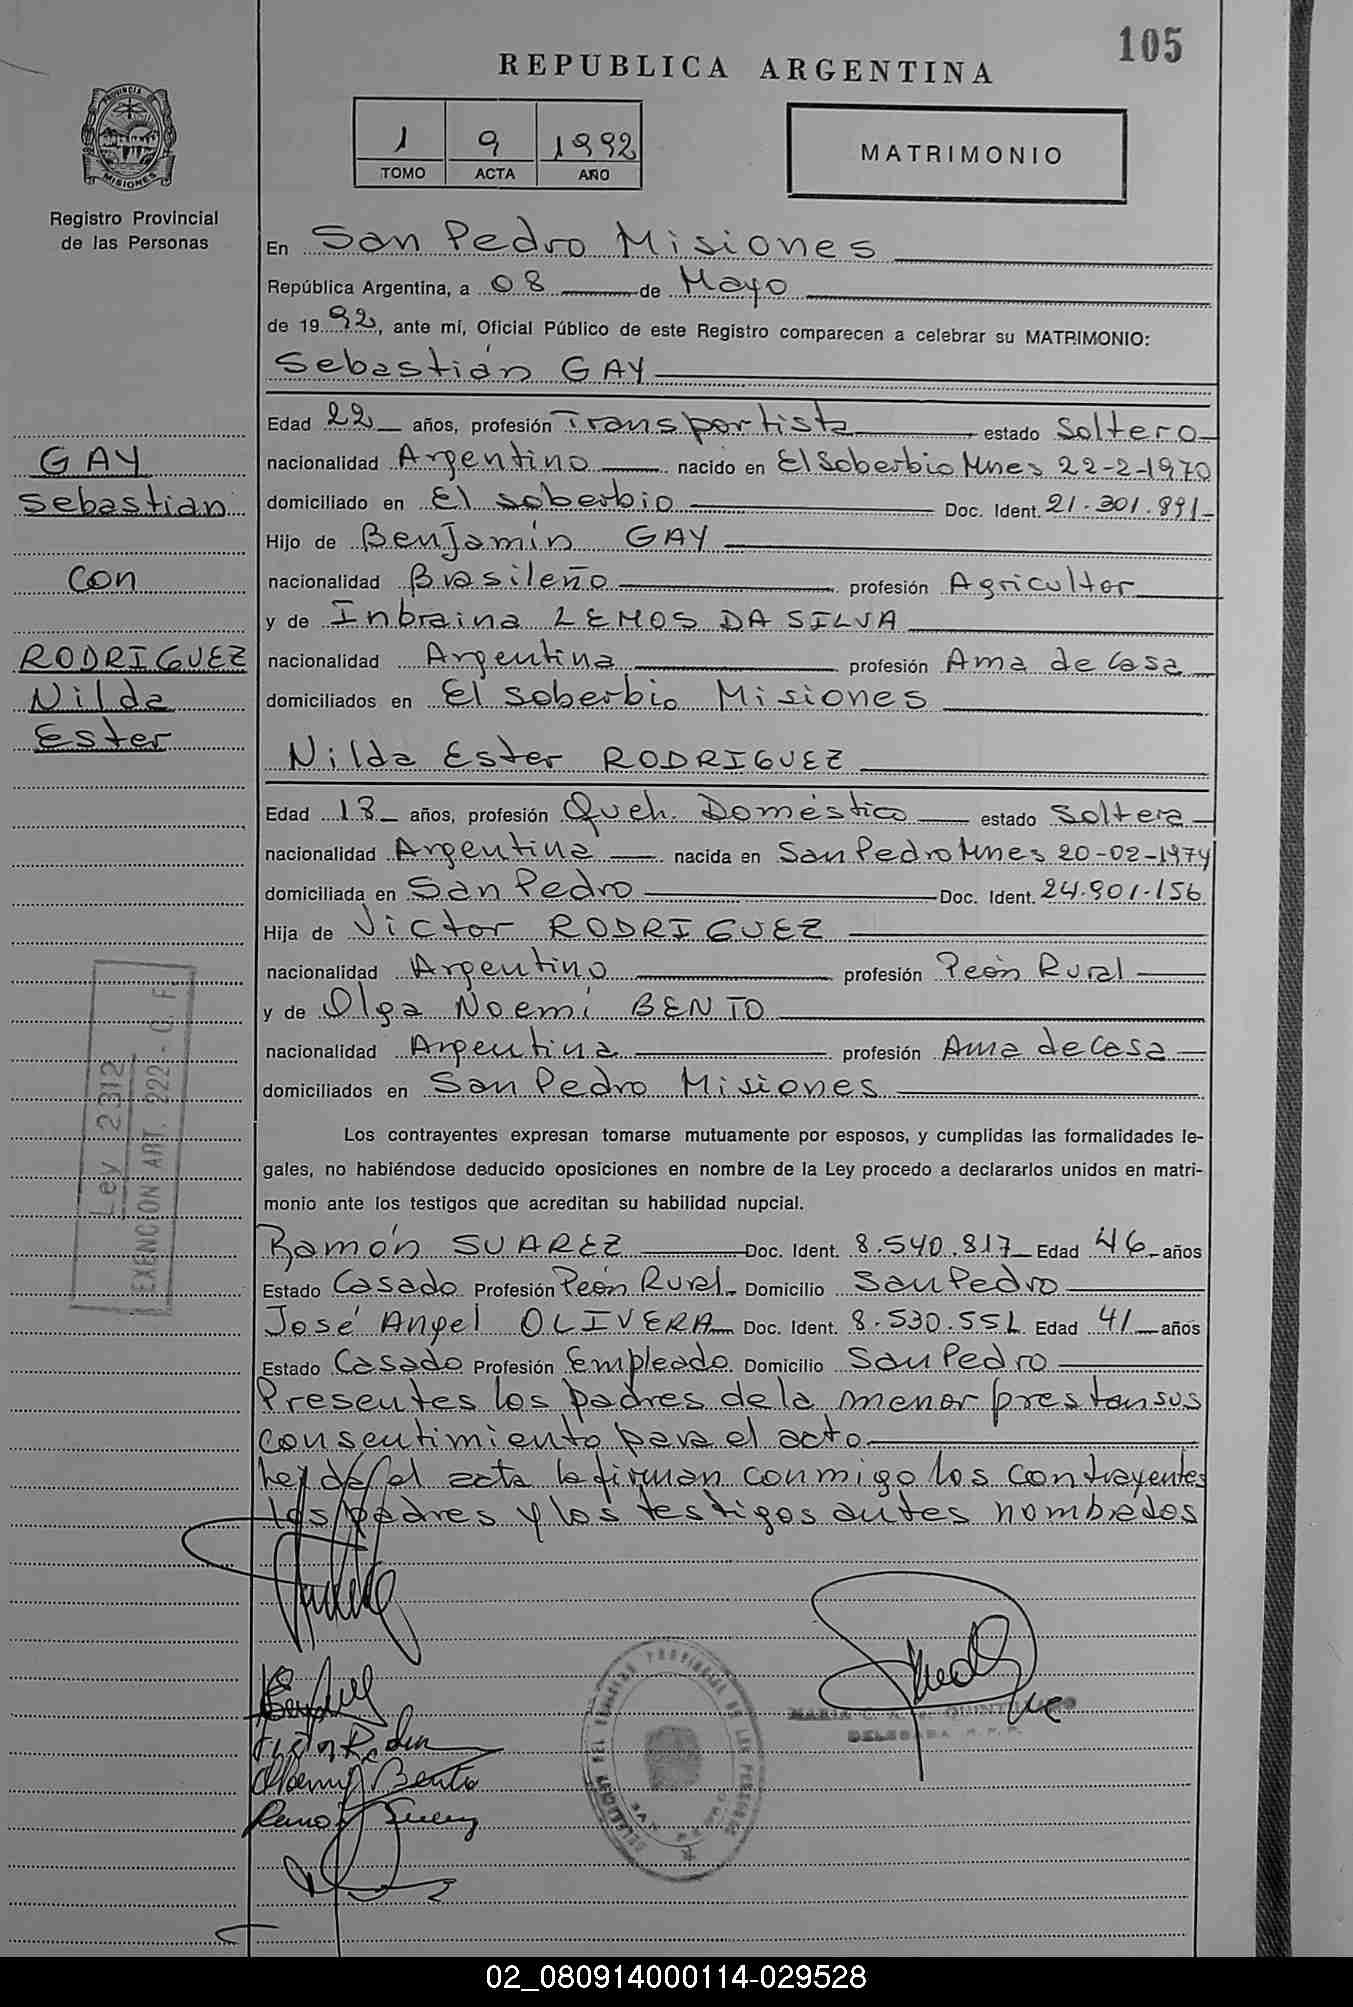 105
REPUBLICA ARGENTINA
1 9 1992
TOMO ACTA AÑO
MATRIMONIO
PROVINCIA
MISIONES
Registro Provincial
de las Personas
En San Pedro Misiones
República Argentina, a 08 de Mayo
de 19 92, ante mí, Oficial Público de este Registro comparecen a celebrar su MATRIMONIO:
Sebastián GAY
Edad 22 años, profesión Transportista estado Soltero
GAY
nacionalidad Argentino nacido en El Soberbio Mnes 22-2-1970
Sebastian
domiciliado en El soberbio Doc. Ident. 21.301.891
Hijo de Benjamín GAY
con
nacionalidad Brasileño profesión Agricultor
y de Inbraina LEMOS DA SILVA
RODRIGUEZ
nacionalidad Argentina profesión Ama de Casa
Nilda
domiciliados en El soberbio Misiones
Ester
Nilda Ester RODRIGUEZ
Edad 18 años, profesión Queh. Doméstico estado Soltera
nacionalidad Argentina nacida en San Pedro Mnes 20-02-1974
domiciliada en San Pedro Doc. Ident. 24.901.156
Hija de Victor RODRIGUEZ
nacionalidad Argentino profesión Peón Rural
y de Olga Noemí BENTO
nacionalidad Argentina profesión Ama de Casa
domiciliados en San Pedro Misiones
Ley 2312
EXENCION ART. 222 - C. F.
Los contrayentes expresan tomarse mutuamente por esposos, y cumplidas las formalidades le-
gales, no habiéndose deducido oposiciones en nombre de la Ley procedo a declararlos unidos en matri-
monio ante los testigos que acreditan su habilidad nupcial.
Ramón SUAREZ Doc. Ident. 8.540.817 Edad 46 años
Estado Casado Profesión Peón Rural Domicilio San Pedro
José Angel OLIVERA Doc. Ident. 8.530.551 Edad 41 años
Estado Casado Profesión Empleado Domicilio San Pedro
Presentes los padres de la menor prestan sus
consentimiento para el acto
leyda el acta la firman conmigo los contrayentes
los padres y los testigos antes nombrados
Noemy Bento
MARIA QUINTIANO
DELEGADA R.P.P.
SAN PEDRO
02_080914000114-029528